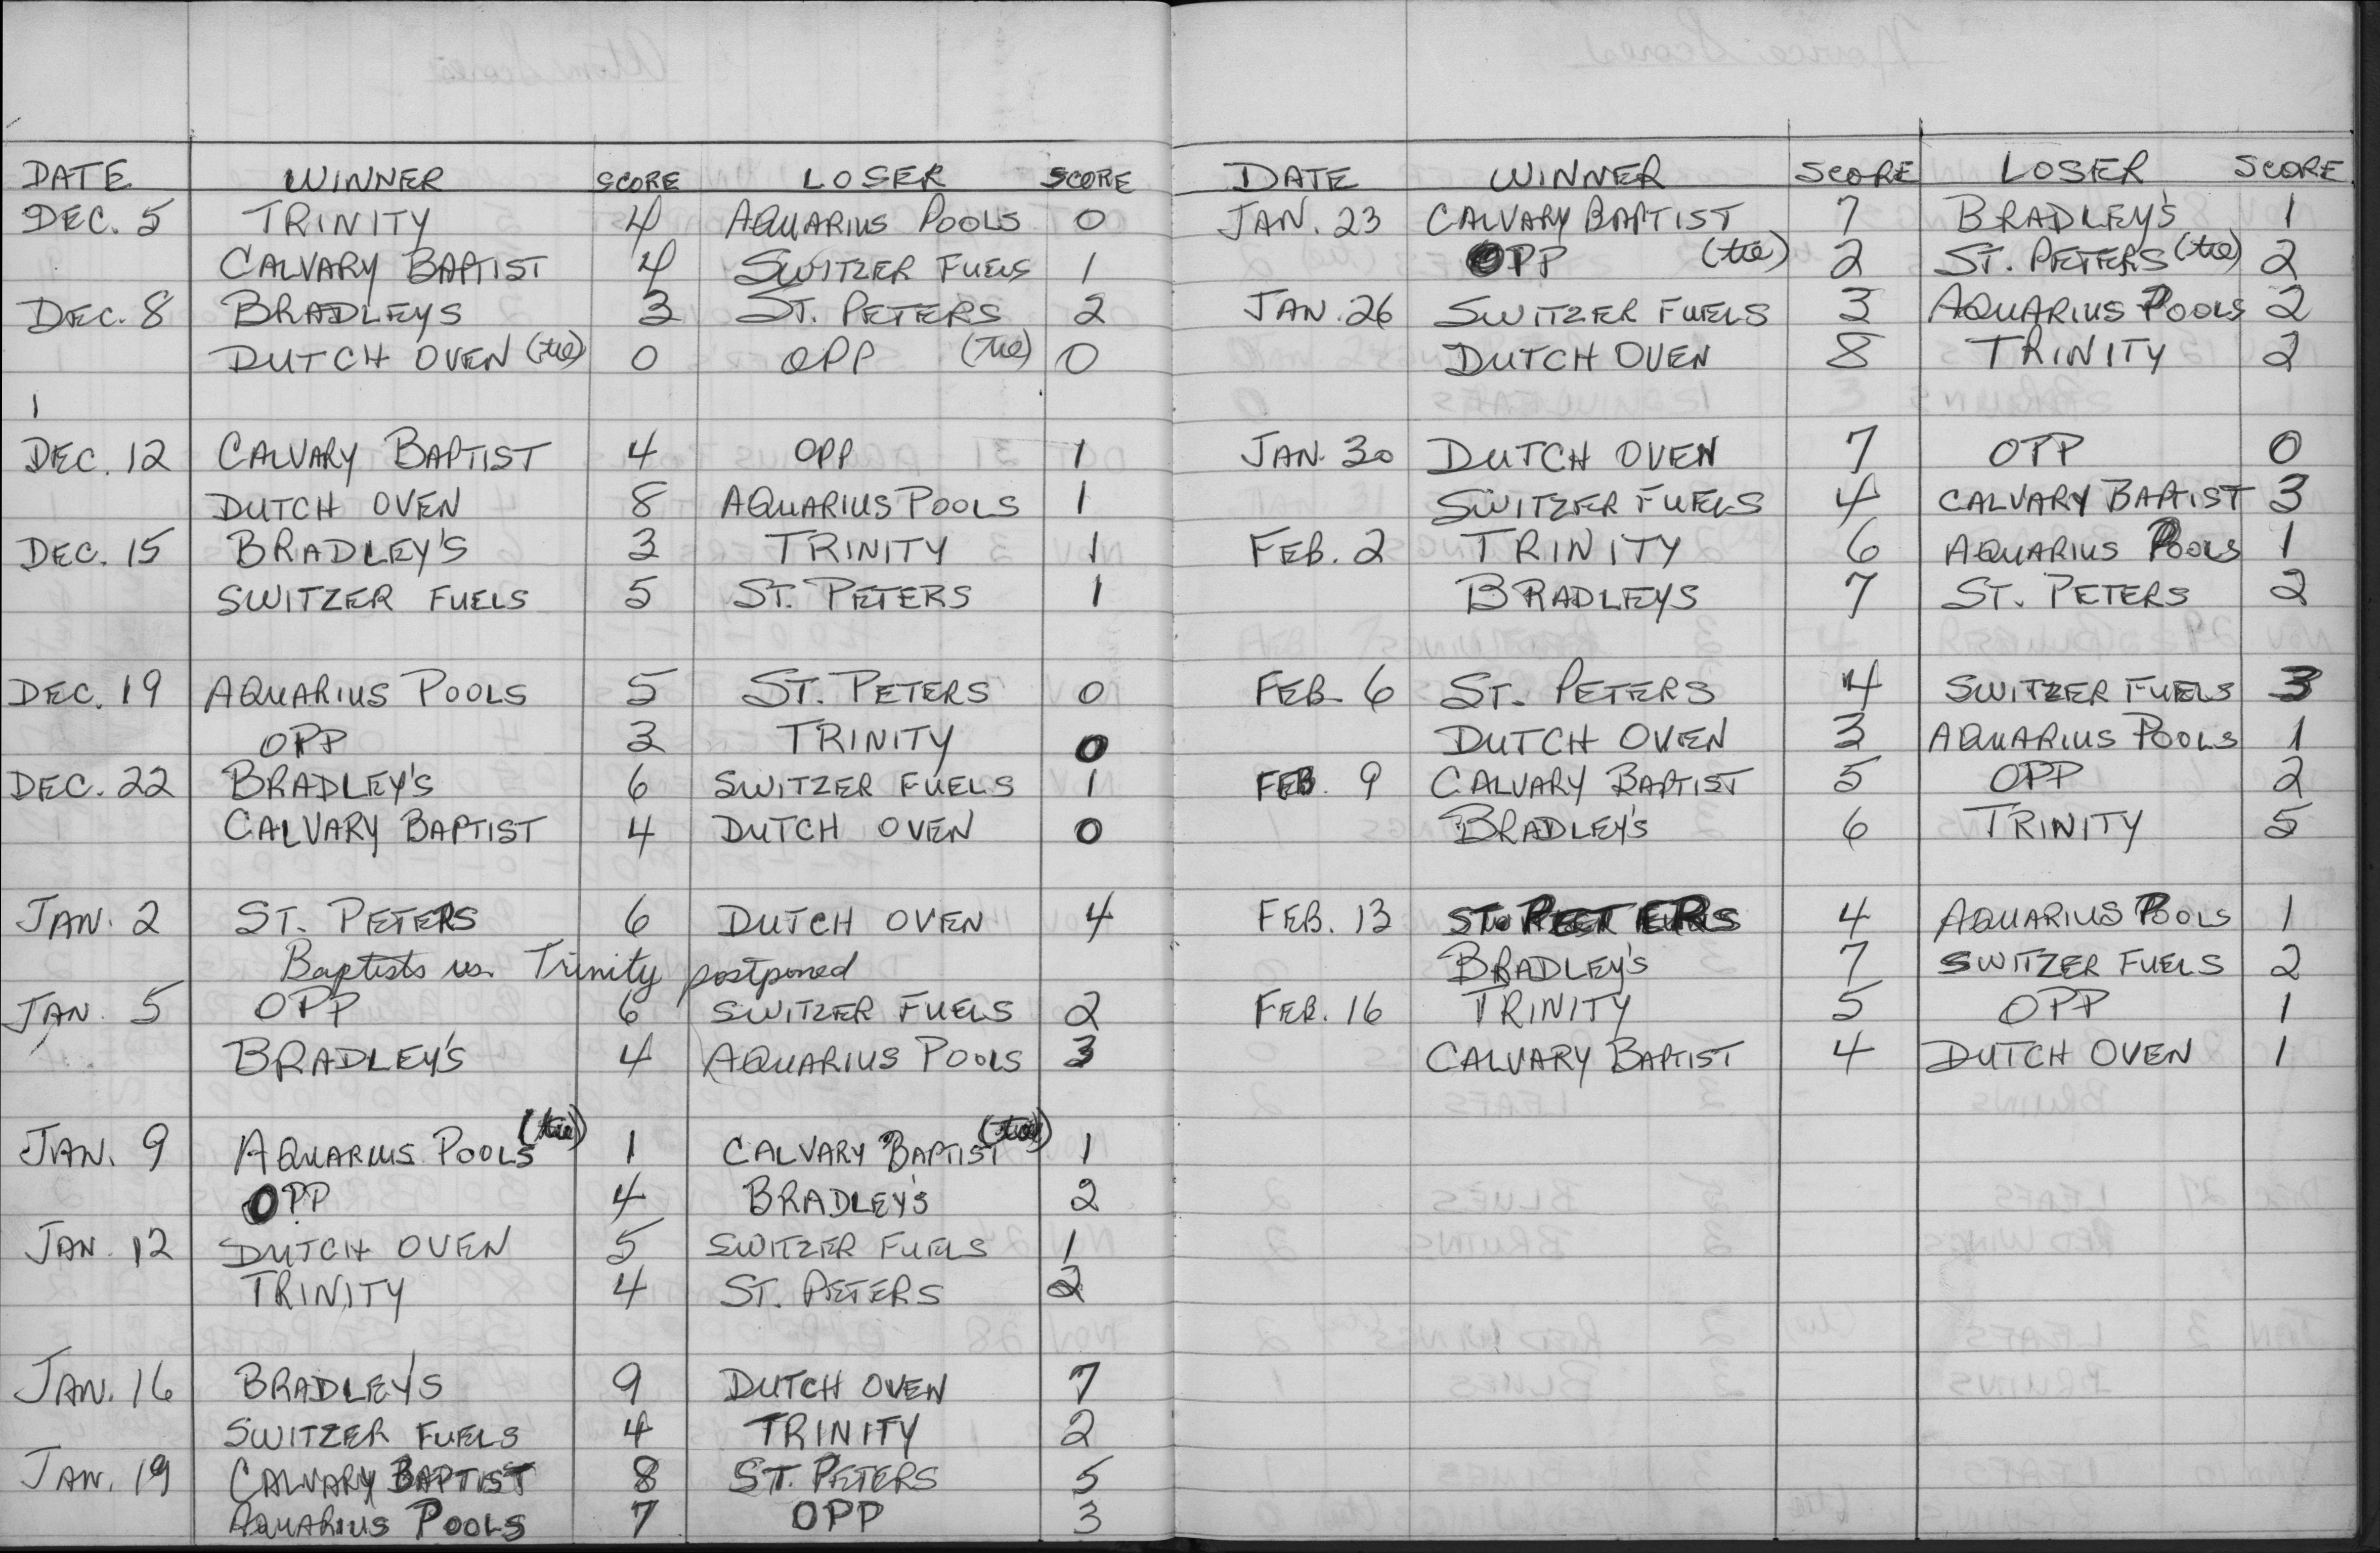 DATE WINNER SCORE LOSER SCORE
DEC. 5 TRINITY 4 AQUARIUS POOLS 0
CALVARY BAPTIST 4 SWITZER FUELS 1
DEC. 8 BRADLEYS 3 ST. PETERS 2
DUTCH OVEN (tie) 0 OPP (tie) 0
DEC. 12 CALVARY BAPTIST 4 OPP 1
DUTCH OVEN 8 AQUARIUS POOLS 1
DEC. 15 BRADLEY'S 3 TRINITY 1
SWITZER FUELS 5 ST. PETERS 1
DEC. 19 AQUARIUS POOLS 5 ST. PETERS 0
OPP 3 TRINITY 0
DEC. 22 BRADLEY'S 6 SWITZER FUELS 1
CALVARY BAPTIST 4 DUTCH OVEN 0
JAN. 2 ST. PETERS 6 DUTCH OVEN 4
Baptists vs. Trinity postponed
JAN. 5 OPP 6 SWITZER FUELS 2
BRADLEY'S 4 AQUARIUS POOLS 3
JAN. 9 AQUARIUS POOLS (tie) 1 CALVARY BAPTIST (tie) 1
OPP 4 BRADLEY'S 2
JAN. 12 DUTCH OVEN 5 SWITZER FUELS 1
TRINITY 4 ST. PETERS 2
JAN. 16 BRADLEY'S 9 DUTCH OVEN 7
SWITZER FUELS 4 TRINITY 2
JAN. 19 CALVARY BAPTIST 8 ST. PETERS 5
AQUARIUS POOLS 7 OPP 3
DATE WINNER SCORE LOSER SCORE
JAN. 23 CALVARY BAPTIST 7 BRADLEY'S 1
OPP (tie) 2 ST. PETERS (tie) 2
JAN. 26 SWITZER FUELS 3 AQUARIUS POOLS 2
DUTCH OVEN 8 TRINITY 2
JAN. 30 DUTCH OVEN 7 OPP 0
SWITZER FUELS 4 CALVARY BAPTIST 3
FEB. 2 TRINITY 6 AQUARIUS POOLS 1
BRADLEYS 7 ST. PETERS 2
FEB. 6 ST. PETERS 4 SWITZER FUELS 3
DUTCH OVEN 3 AQUARIUS POOLS 1
FEB. 9 CALVARY BAPTIST 5 OPP 2
BRADLEY'S 6 TRINITY 5
FEB. 13 ST. PETERS 4 AQUARIUS POOLS 1
BRADLEY'S 7 SWITZER FUELS 2
FEB. 16 TRINITY 5 OPP 1
CALVARY BAPTIST 4 DUTCH OVEN 1